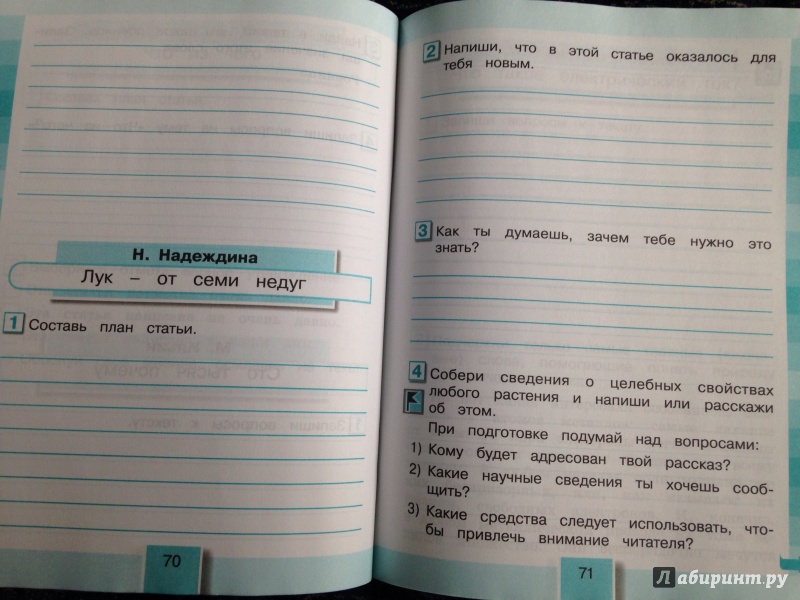 Н. Надеждина
Лук – от семи недуг
1 Составь план статьи.
70
2 Напиши, что в этой статье оказалось для
тебя новым.
3 Как ты думаешь, зачем тебе нужно это
знать?
4 Собери сведения о целебных свойствах
любого растения и напиши или расскажи
об этом.
При подготовке подумай над вопросами:
1) Кому будет адресован твой рассказ?
2) Какие научные сведения ты хочешь сооб-
щить?
3) Какие средства следует использовать, что-
бы привлечь внимание читателя?
71
Лабиринт.ру